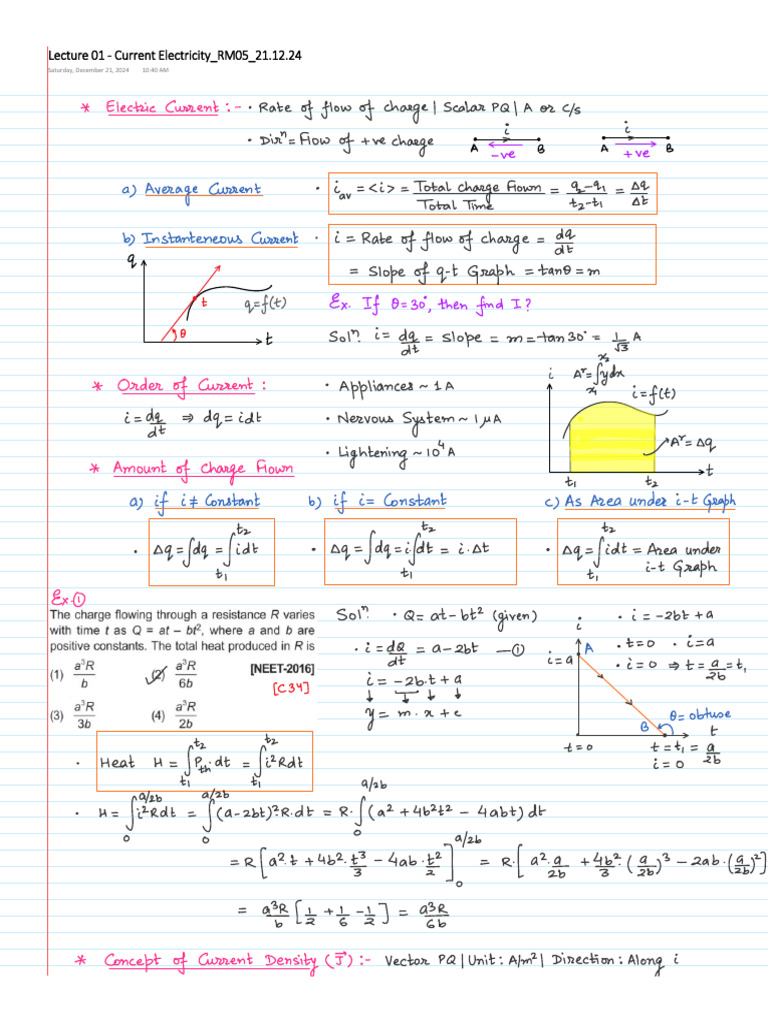 Lecture 01 - Current Electricity_RM05_21.12.24
Saturday, December 21, 2024 10:40 AM
* Electric Current :- • Rate of flow of charge | Scalar PQ | A or C/s
• Dirⁿ = Flow of +ve charge
i
A B
-ve
i
A B
+ve
a) Average Current • i_av = <i> = Total charge Flown / Total Time = (q₂-q₁)/(t₂-t₁) = Δq/Δt
b) Instanteneous Current • i = Rate of flow of charge = dq/dt
= Slope of q-t Graph = tanθ = m
q
t
q=f(t)
θ
t
Ex. If θ=30°, then find I?
Solⁿ. i = dq/dt = slope = m = tan30° = 1/√3 A
* Order of Current : • Appliances ~ 1A
i = dq/dt ⇒ dq = idt • Nervous System ~ 1μA
• Lightening ~ 10⁴A
i
Aʳ = ∫_{x₁}^{x₂} ydx
i=f(t)
Aʳ = Δq
t₁ t₂ t
* Amount of Charge Flown
a) if i ≠ Constant b) if i = Constant c) As Area under i-t Graph
• Δq = ∫dq = ∫_{t₁}^{t₂} idt • Δq = ∫dq = i∫_{t₁}^{t₂} dt = i.Δt • Δq = ∫_{t₁}^{t₂} idt = Area under
i-t Graph
Ex.①
The charge flowing through a resistance R varies
with time t as Q = at – bt², where a and b are
positive constants. The total heat produced in R is
(1) a³R/b (2) a³R/6b [NEET-2016]
[C34]
(3) a³R/3b (4) a³R/2b
Solⁿ. • Q = at-bt² (given)
• i = dQ/dt = a-2bt —①
i = -2b.t + a
↓ ↓ ↓ ↓
y = m . x + c
i
• i = -2bt + a
• t=0 • i=a
• i=0 ⇒ t = a/2b = t₁
i=a
A
B
θ = obtuse
t
t=0 t = t₁ = a/2b
i=0
• Heat H = ∫_{t₁}^{t₂} P_th.dt = ∫_{t₁}^{t₂} i²Rdt
• H = ∫_0^{a/2b} i²Rdt = ∫_0^{a/2b} (a-2bt)².R.dt = R.∫_0^{a/2b} (a² + 4b²t² - 4abt) dt
= R [a².t + 4b².t³/3 - 4ab.t²/2]_0^{a/2b} = R.[a².a/2b + 4b²/3.(a/2b)³ - 2ab.(a/2b)²]
= a³R/b [1/2 + 1/6 - 1/2] = a³R/6b
* Concept of Current Density (J⃗) :- Vector PQ | Unit : A/m² | Direction : Along i